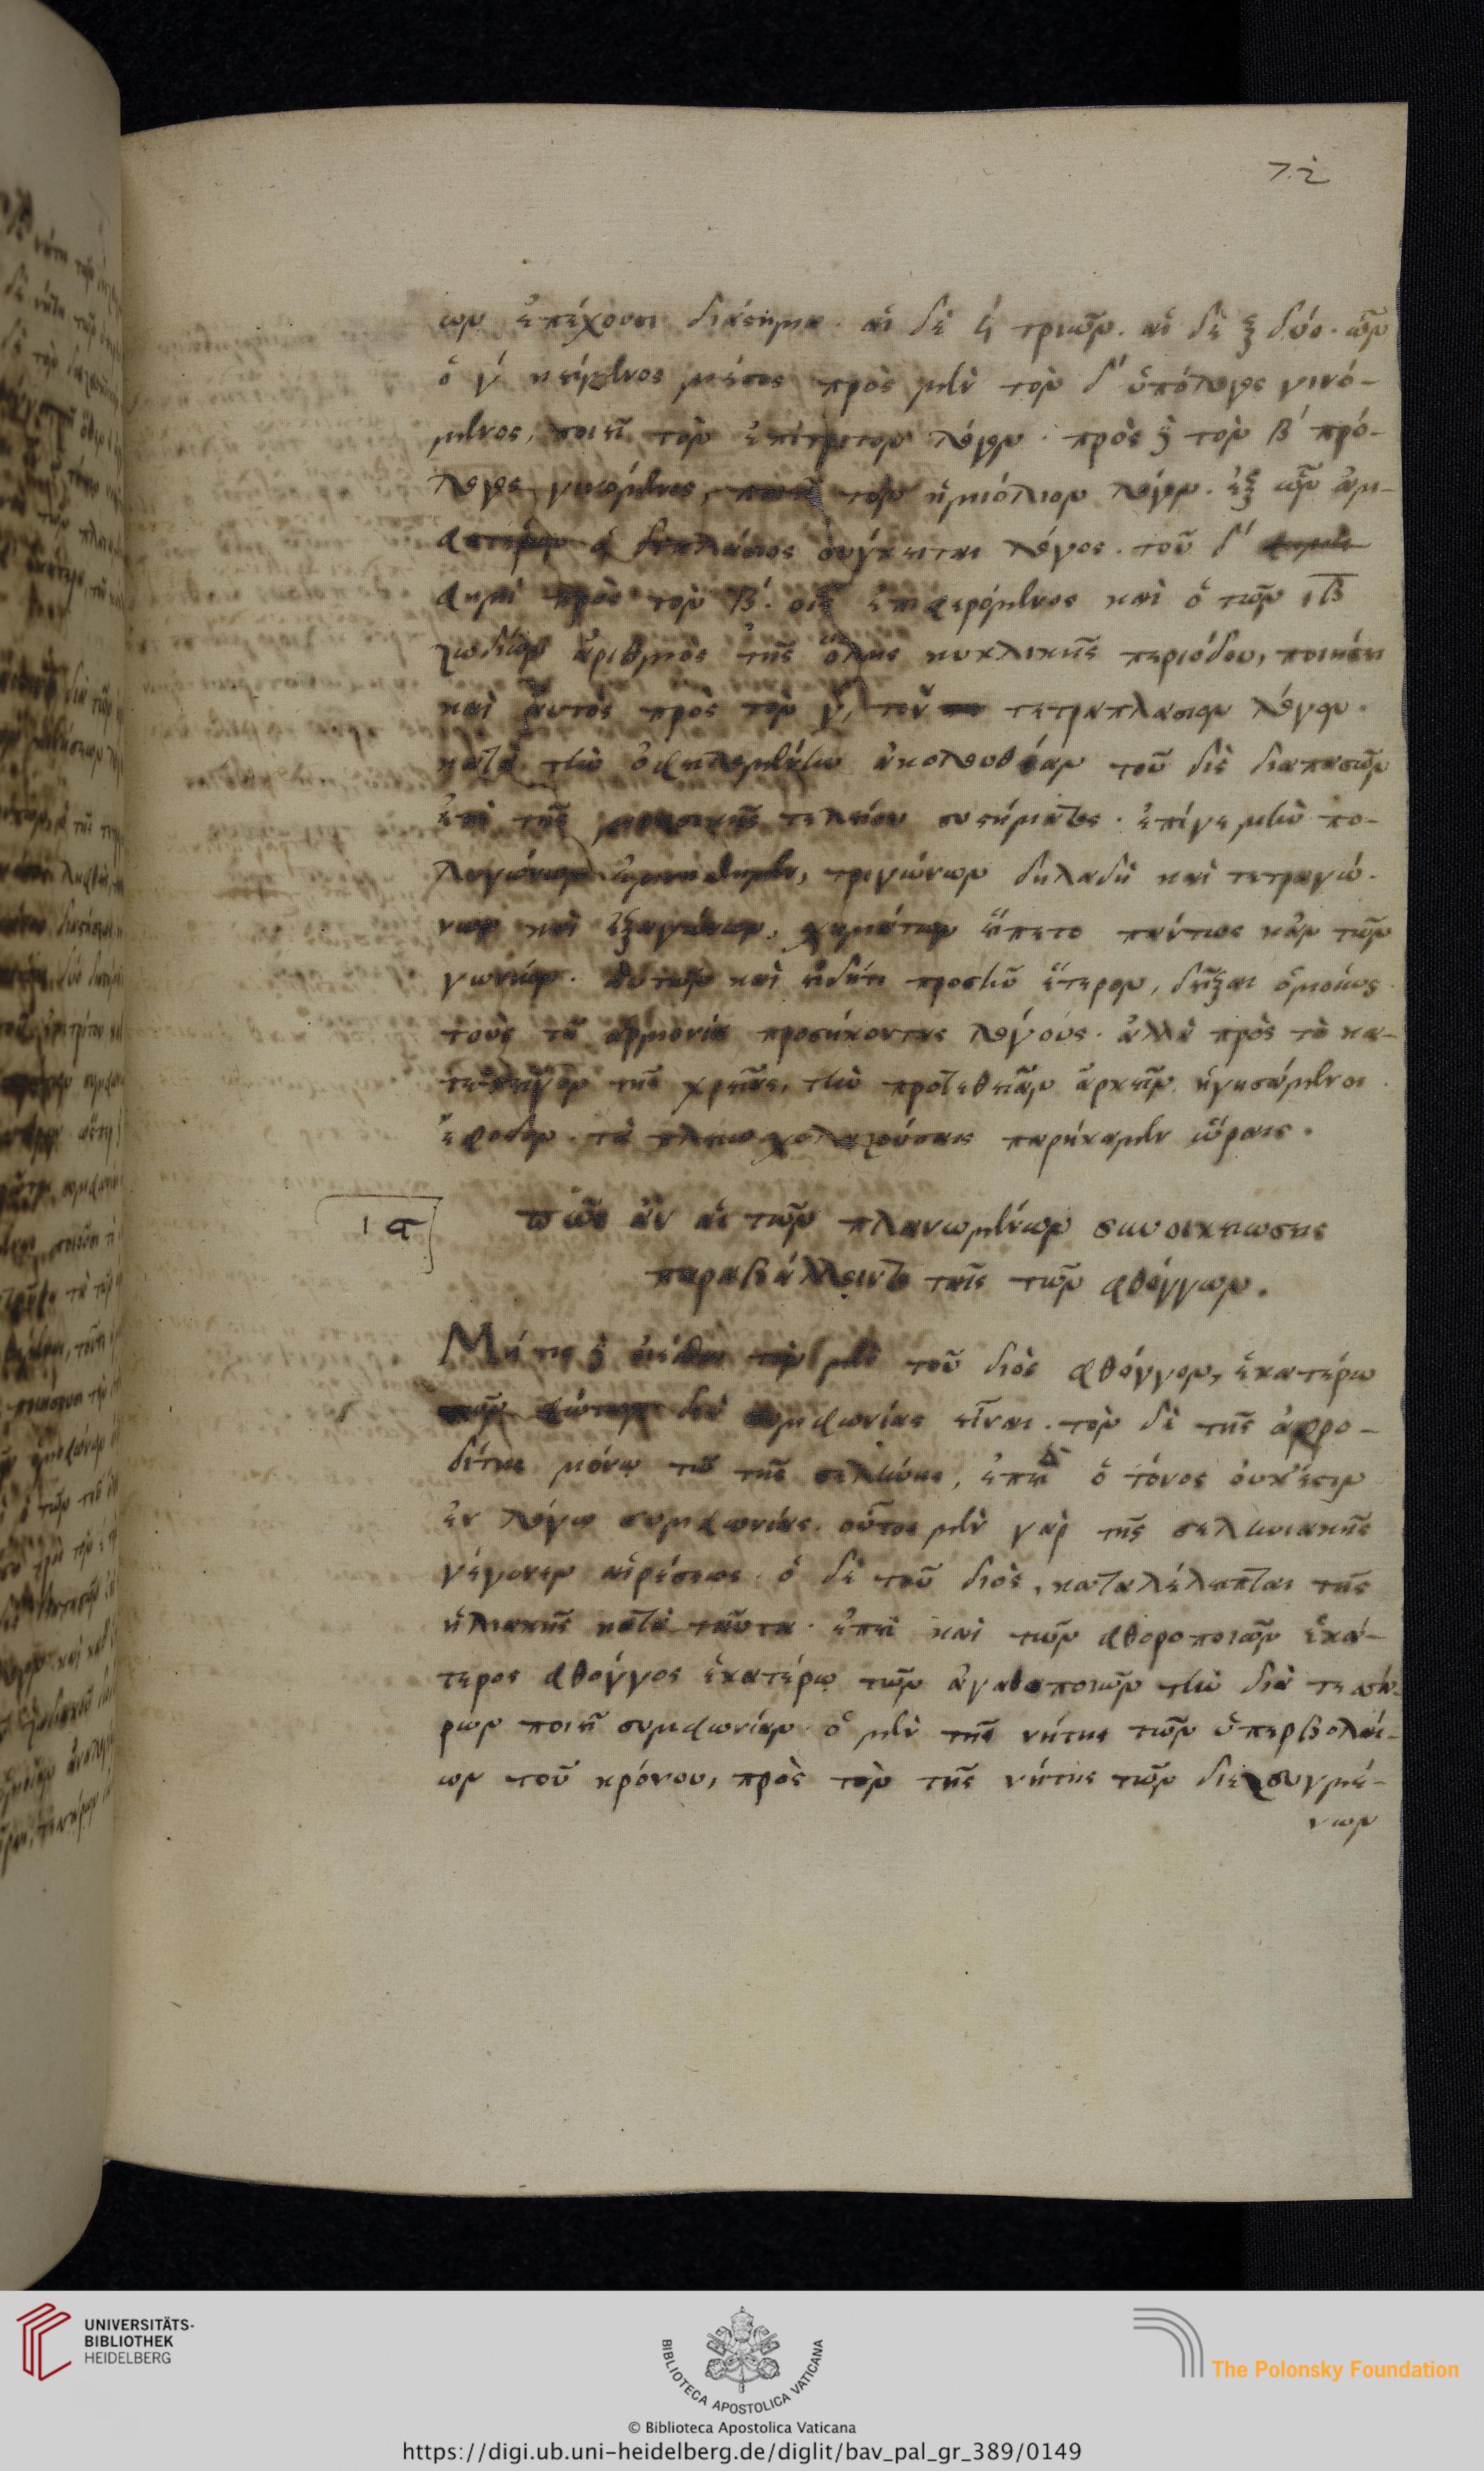 72
ων ἐπέχουσι διάστημα. αἱ δὲ ἐκ τριῶν. αἱ δὲ ἐξ δύο. ὧν
ὁ γ΄ κείμενος μέσος πρὸς μὲν τὸν δ΄ ὑπόλογος γινό-
μενος, ποιεῖ τὸν ἐπίτριτον λόγον. πρὸς δὲ τὸν β΄ πρό-
λογος γινόμενος, ποιεῖ τὸν ἡμιόλιον λόγον. ἐξ ὧν ἀμ-
φοτέρων ὁ διπλάσιος σύγκειται λόγος. τοῦ δ΄
φημὶ πρὸς τὸν β΄. οἷς ἐπιφερόμενος καὶ ὁ τῶν ιβ
ζωδίων ἀριθμὸς τῆς ὅλης κυκλικῆς περιόδου, ποιήσει
καὶ αὐτὸς πρὸς τὸν γ΄, τὸν τετραπλάσιον λόγον.
κατὰ τὴν ὀφειλομένην ἀκολουθίαν τοῦ δὶς διαπασῶν
ἐπὶ τῆς μουσικῆς τελείου συστήματος. ἐπί γε μὴν πο-
λυγώνων ἐμνήσθημεν, τριγώνων δηλαδὴ καὶ τετραγώ-
νων καὶ ἑξαγώνων, σχημάτων εἵπετο πάντως κἀν τῶν
γωνιῶν. αὐτῶν καὶ εἰ δή τι προσῆν ἕτερον, δεῖξαι ὁμοίως
τοὺς τῇ ἁρμονίᾳ προσήκοντας λόγους. ἀλλὰ πρὸς τὸ κα-
τεπεῖγον τῆς χρείας, τὴν προτεθεῖσαν ἀρκεῖν ἡγησάμενοι
ἔφοδον. τὰ πλείω σχολαζούσαις παρήκαμεν ὥραις.
ις
πῶς ἂν αἱ τῶν πλανωμένων συνοικειώσεις
παραβάλλοιντο ταῖς τῶν φθόγγων.
Μή τις δὲ οἰέσθω τὸν μὲν τοῦ διὸς φθόγγον, ἑκατέρῳ
τῶν φώτων ἐν συμφωνίας εἶναι. τὸν δὲ τῆς ἀφρο-
δίτης μόνῳ τῷ τῆς σελήνης, ἐπεὶ δὲ ὁ τόνος οὐκ ἔστιν
ἐν λόγῳ συμφωνίας. οὗτος μὲν γὰρ τῆς σεληνιακῆς
γέγονεν αἱρέσεως. ὁ δὲ τοῦ διὸς, καταλέλειπται τῆς
ἡλιακῆς κατὰ ταῦτα. ἐπεὶ καὶ τῶν φθοροποιῶν ἑκά-
τερος φθόγγος ἑκατέρῳ τῶν ἀγαθοποιῶν τὴν διὰ τεσσά-
ρων ποιεῖ συμφωνίαν. ὁ μὲν τῆς νήτης τῶν ὑπερβολαί-
ων τοῦ κρόνου, πρὸς τὸν τῆς νήτης τῶν διεζευγμέ-
νων
UNIVERSITÄTS-
BIBLIOTHEK
HEIDELBERG
BIBLIOTECA APOSTOLICA VATICANA
The Polonsky Foundation
© Biblioteca Apostolica Vaticana
https://digi.ub.uni-heidelberg.de/diglit/bav_pal_gr_389/0149